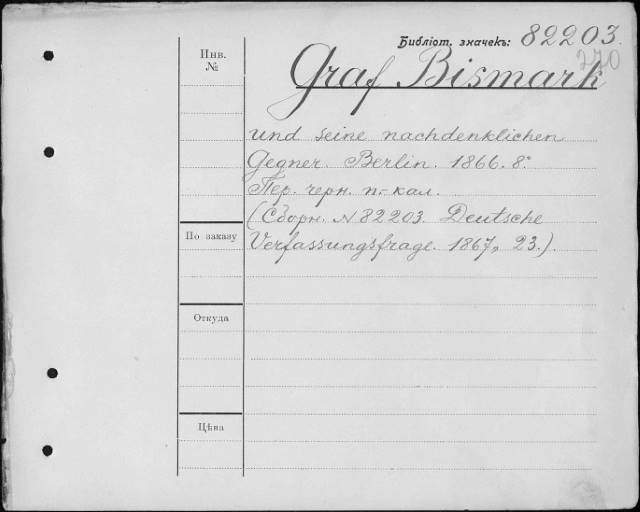 Библіот. значекъ: 82203.
270
Инв.
№
Graf Bismark
und seine nachdenklichen
Gegner. Berlin. 1866. 8°
Пер. черн. п.-кал.
(Сборн. № 82203. Deutsche
По заказу
Verfassungsfrage. 1867, 23.).
Откуда
Цѣна